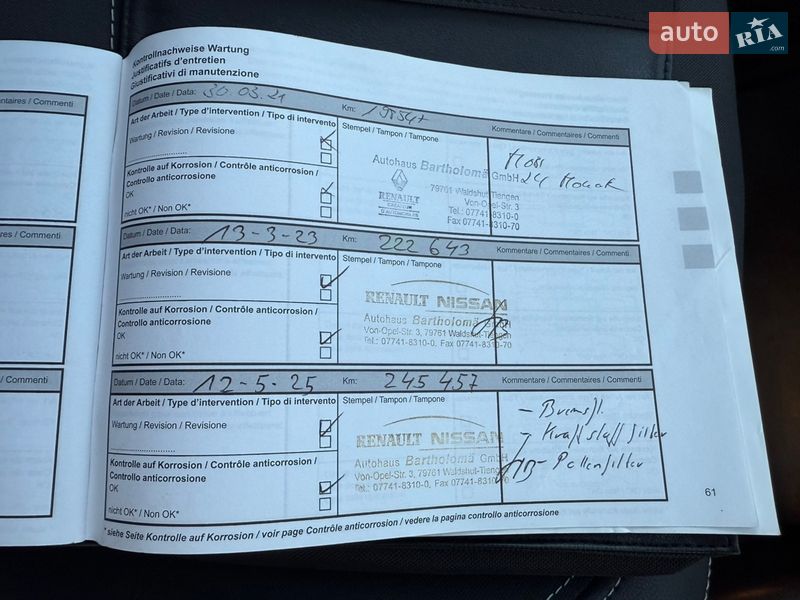 auto RIA.com
Kontrollnachweise Wartung
Justificatifs d'entretien
Giustificativi di manutenzione
Datum / Date / Data: 30.03.21 Km:
Art der Arbeit / Type d'intervention / Tipo di intervento
Stempel / Tampon / Tampone
Kommentare / Commentaires / Commenti
Wartung / Revision / Revisione
Kontrolle auf Korrosion / Contrôle anticorrosion /
Controllo anticorrosione
OK
nicht OK* / Non OK*
Autohaus Bartholomä GmbH
RENAULT
79761 Waldshut-Tiengen
Von-Opel-Str. 3
Tel.: 07741-8310-0
Fax 07741-8310-70
24 Monate
Datum / Date / Data: 13-3-23 Km: 222 643
Art der Arbeit / Type d'intervention / Tipo di intervento
Stempel / Tampon / Tampone
Kommentare / Commentaires / Commenti
Wartung / Revision / Revisione
Kontrolle auf Korrosion / Contrôle anticorrosion /
Controllo anticorrosione
OK
nicht OK* / Non OK*
RENAULT NISSAN
Autohaus Bartholomä GmbH
Von-Opel-Str. 3, 79761 Waldshut-Tiengen
Tel.: 07741-8310-0, Fax 07741-8310-70
Datum / Date / Data: 12-5-25 Km: 245 457
Art der Arbeit / Type d'intervention / Tipo di intervento
Stempel / Tampon / Tampone
Kommentare / Commentaires / Commenti
Wartung / Revision / Revisione
Kontrolle auf Korrosion / Contrôle anticorrosion /
Controllo anticorrosione
OK
nicht OK* / Non OK*
RENAULT NISSAN
Autohaus Bartholomä GmbH
Von-Opel-Str. 3, 79761 Waldshut-Tiengen
Tel.: 07741-8310-0, Fax 07741-8310-70
- Bremsfl.
- Kraftstofffilter
- Pollenfilter
* siehe Seite Kontrolle auf Korrosion / voir page Contrôle anticorrosion / vedere la pagina controllo anticorrosione
61
entaires / Commenti
res / Commenti
/ Commenti